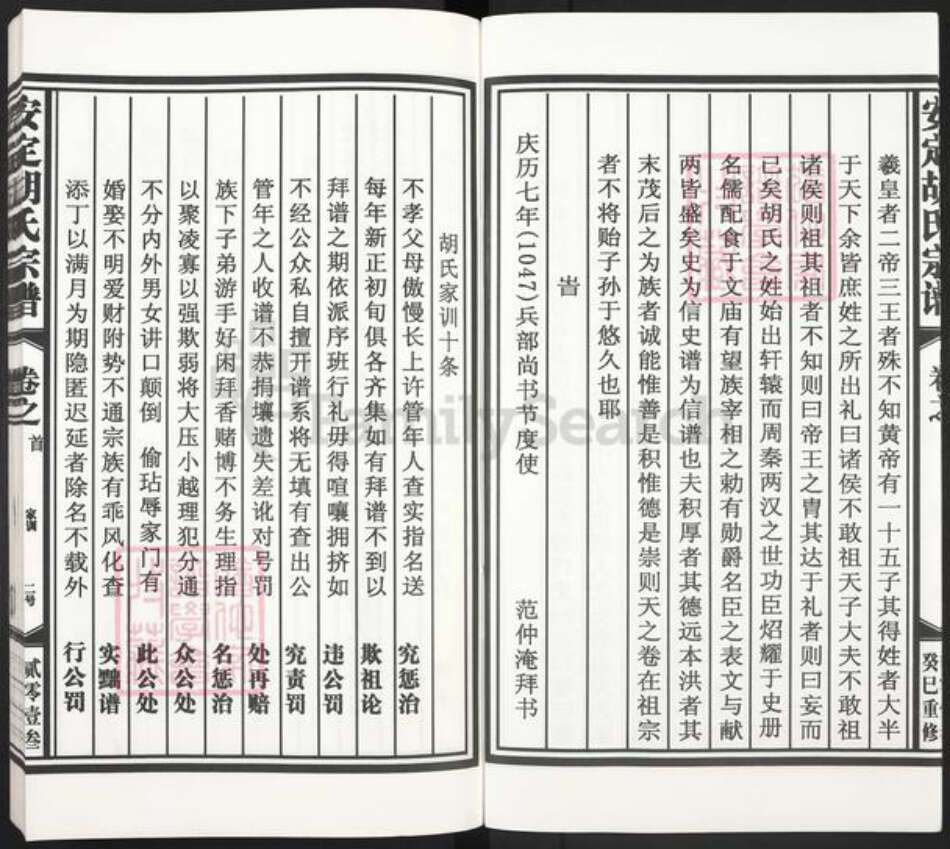 安定胡氏宗谱
卷之
癸巳重修
羲皇者二帝三王者殊不知黄帝有一十五子其得姓者大半
于天下余皆庶姓之所出礼曰诸侯不敢祖天子大夫不敢祖
诸侯则祖其祖者不知则曰帝王之胄其达于礼者则曰妄而
已矣胡氏之姓始出轩辕而周秦两汉之世功臣炤耀于史册
名儒配食于文庙有望族宰相之勅有勋爵名臣之表文与献
两皆盛矣史为信史谱为信谱也夫积厚者其德远本洪者其
末茂后之为族者诚能惟善是积惟德是崇则天之卷在祖宗
者不将贻子孙于悠久也耶
旹
庆历七年(1047)兵部尚书节度使 范仲淹拜书
胡氏家训十条
不孝父母傲慢长上许管年人查实指名送 究惩治
每年新正初旬俱各齐集如有拜谱不到以 欺祖论
拜谱之期依派序班行礼毋得喧嚷拥挤如 违公罚
不经公众私自擅开谱系将无填有查出公 究责罚
管年之人收谱不恭捐壤遗失差讹对号罚 处再赔
族下子弟游手好闲拜香赌博不务生理指 名惩治
以聚凌寡以强欺弱将大压小越理犯分通 众公处
不分内外男女讲口颠倒 偷玷辱家门有 此公处
婚娶不明爱财附势不通宗族有乖风化查 实黜谱
添丁以满月为期隐匿迟延者除名不载外 行公罚
安定胡氏宗谱
卷之
首
家训
二号
贰零壹叁
FamilySearch